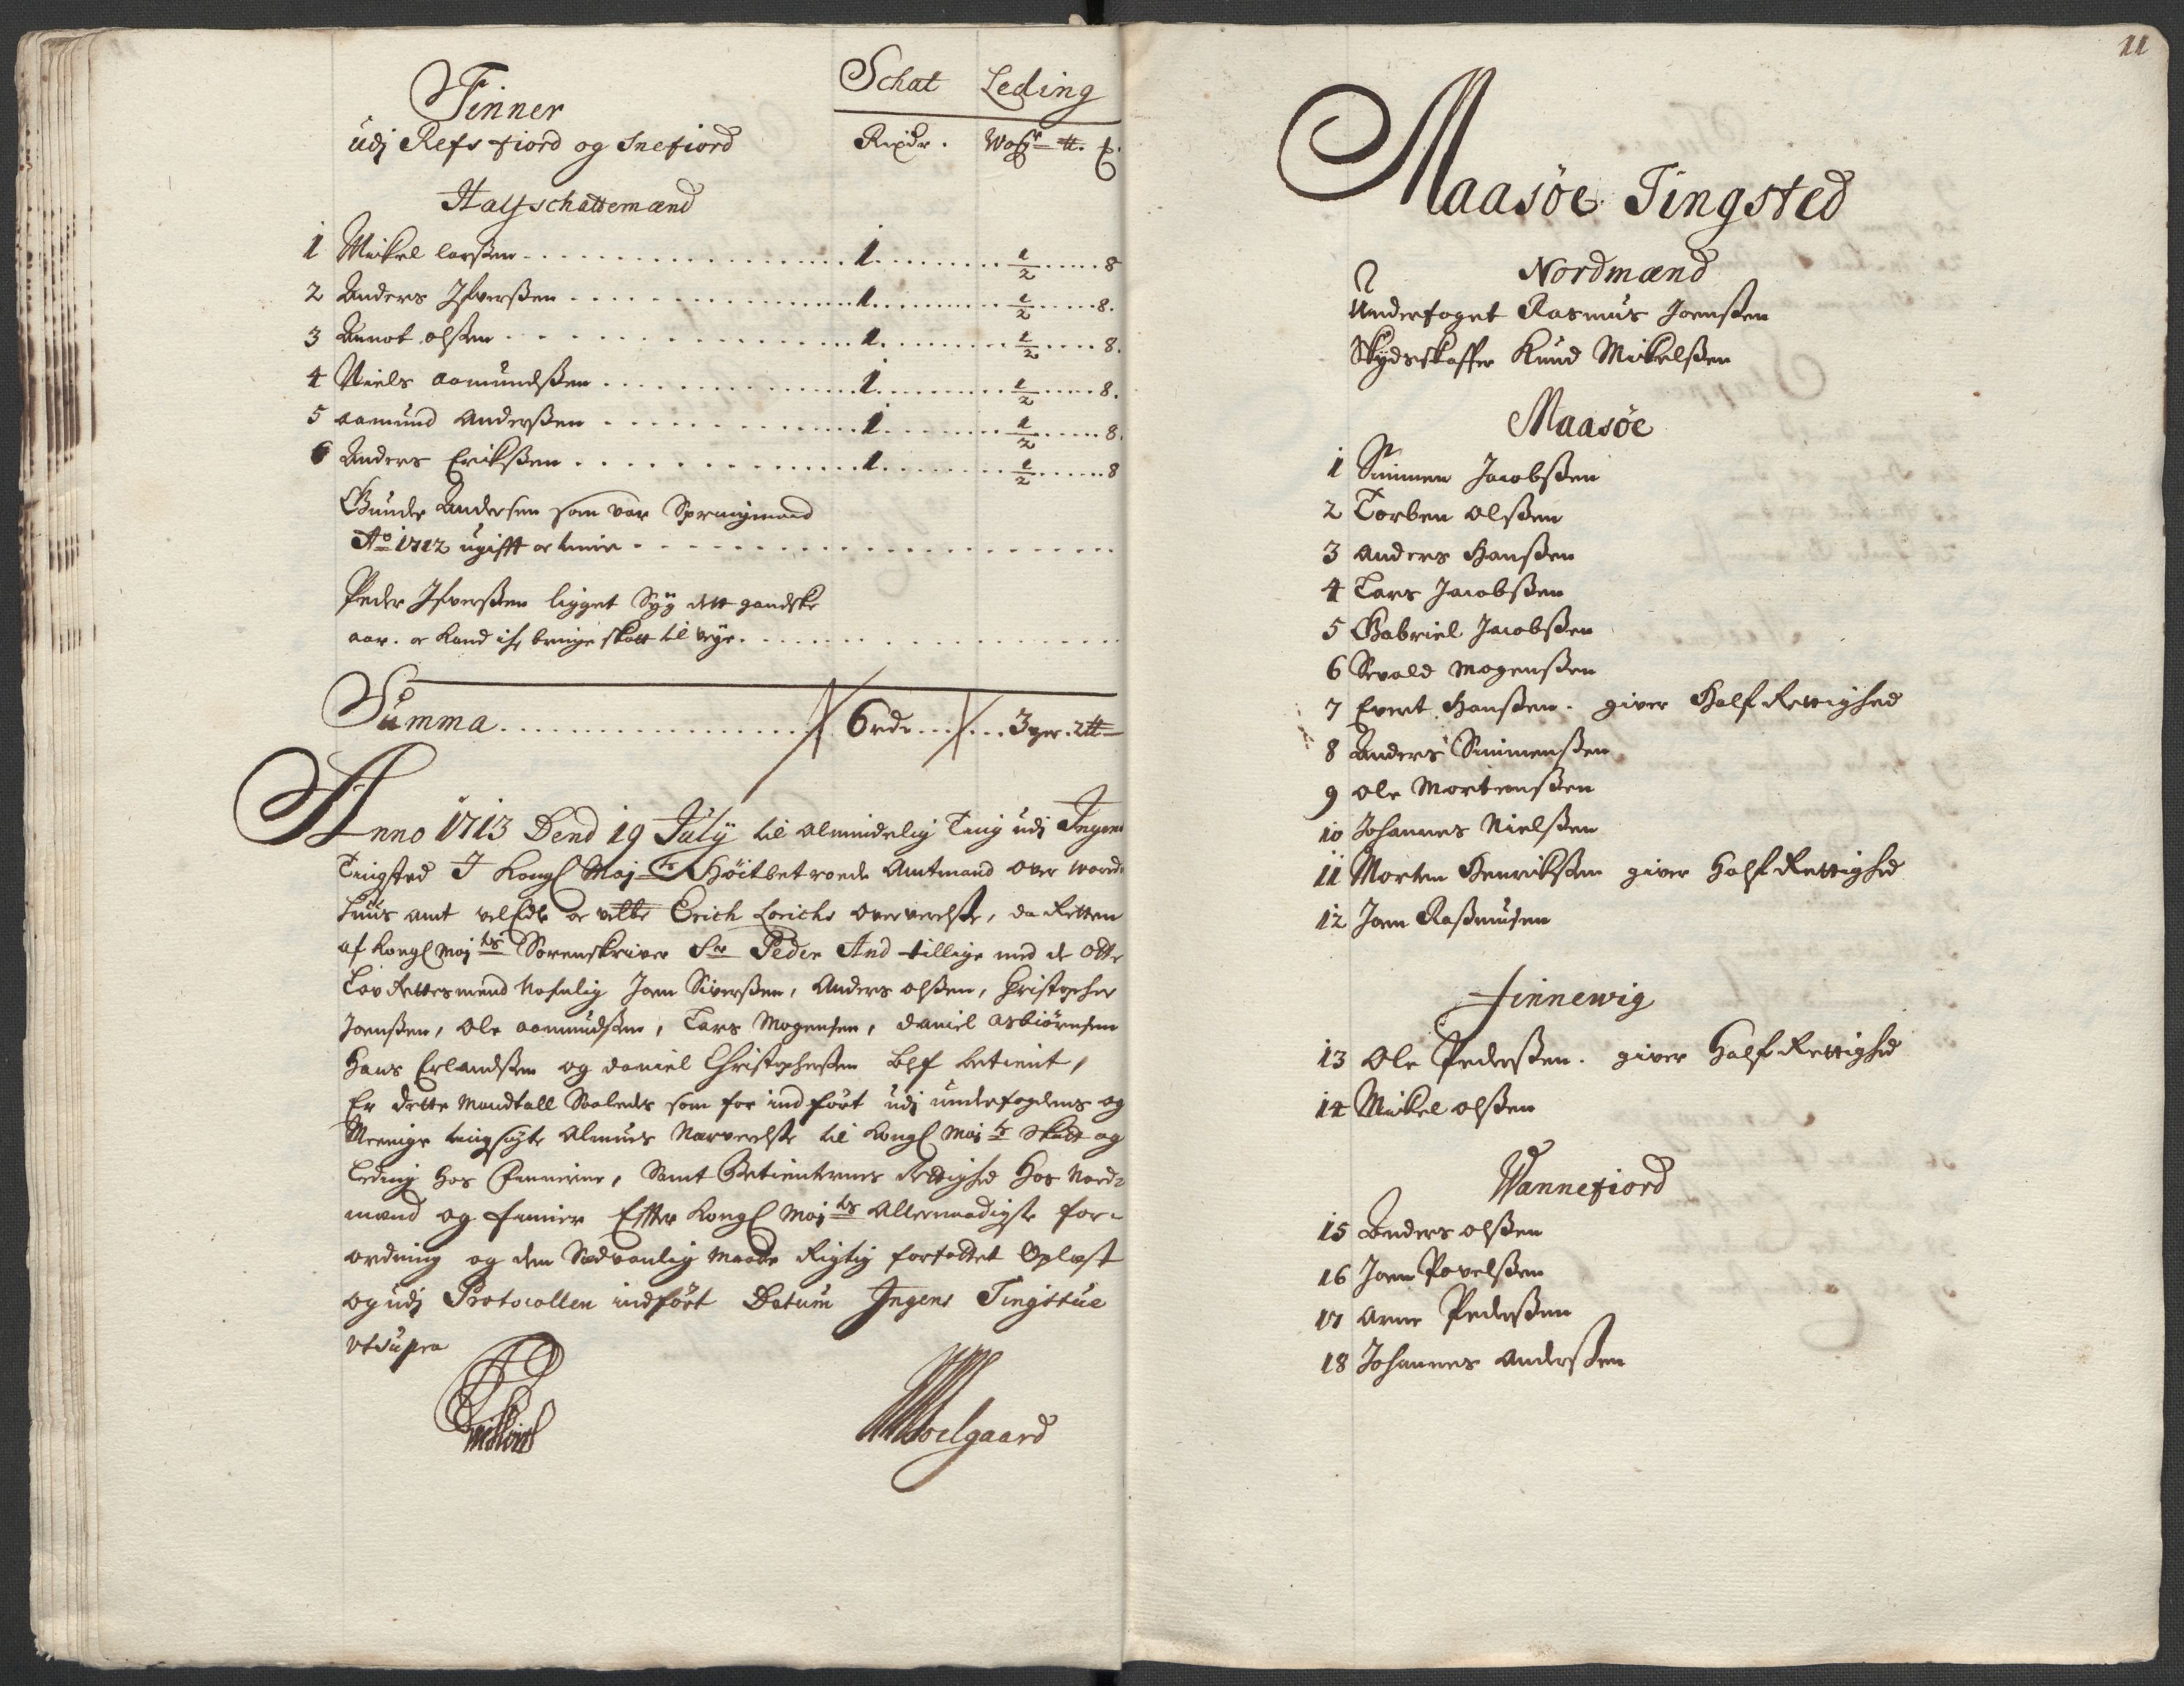 Schat Leding
Finner
udj Refsfiord og Snefiord Rixdr. Wogr ℔.
Halfschattemænd
1 Mickel larsßen 1 1/2 8
2 Anders Ifverßen 1 1/2 8.
3 Annot olßen 1 1/2 8.
4 Niels aamundßen 1 1/2 8.
5 aamund Anderßen 1 1/2 8.
6 Anders Erickßen 1 1/2 8
Gunder Andersen som var Sprengmand
Ao 1712 ugifft
Peder Ifverßen ligget Syg dett gandske
aar. Kand iche bringe skatt til veye.
Summa 6 rdr 3 2 ℔
Anno 1713 Dend 19 July til Almindelig Ting udj Ingens
Tingsted I Kongl Maj ts Höitbetroede Amtmand over Wardø
huus amt Erich Lorichs oververelse, da Retten
af Kongl Maj ts Sorenskriver Sr Peder And tillige med de Otte
Lov Rettesmend Nafnlig Joen Siverßen, Anders olßen, Christopher
Joenßen, Ole aamundßen, Lars Mogensen, daniel asbiörnsen
Hans Erlandßen og daniel Christopherßen blef betient,
Er dette Mandtall Saaledes som for indfört udj underfogdens og
Meenige tingsøgte Almues Nærverelse til Kongl Maj ts Skatt og
Leding hos Finnerne, Samt Betienternes Rettighed Hos Nord-
mænd og finner Effter Kongl Maj ts Allernaadigste for-
ordning og den Sædvanlig Maade Rigtig forfattet Oplæst
og udj Protocollen indfört Datum Ingens Tingstue
ut supra
Woelgaard
11
Maasöe Tingsted
Nordmænd
Underfoget Rasmus Joenßen
Skydsskaffer Knud Mickelßen
Maasöe
1 Simmen Jacobßen
2 Torben olßen
3 anders Hanßen
4 Lars Jacobßen
5 Gabriel Jacobßen
6 Sevald Mogenßen
7 Evert Hanßen. giver Half Rettighed
8 Anders Simmenßen
9 ole Mortenßen
10 Johannes Nielßen
11 Morten Henrikßen giver Half Rettighed
12 Joen Raßmusen
finnewig
13 Ole Pederßen. giver Half Rettighed
14 Mickel olßen
Wannefiord
15 Anders olßen
16 Joen Povelßen
17 Arne Pederßen
18 Johannes Anderßen